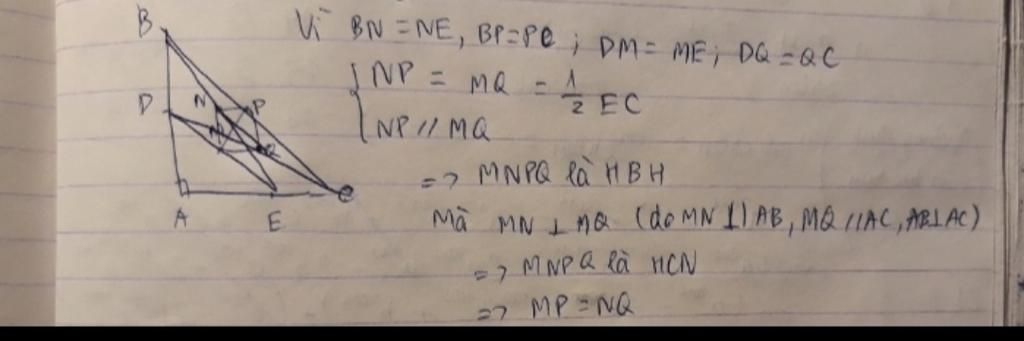 Vì BN = NE, BP = PC ; DM = ME; DQ = QC
{ NP = MQ = 1/2 EC
NP // MQ
=> MNPQ là HBH
Mà MN ⊥ MQ (do MN // AB, MQ // AC, AB⊥AC)
=> MNPQ là HCN
=> MP = NQ
B
D
N
P
M
Q
A
E
C